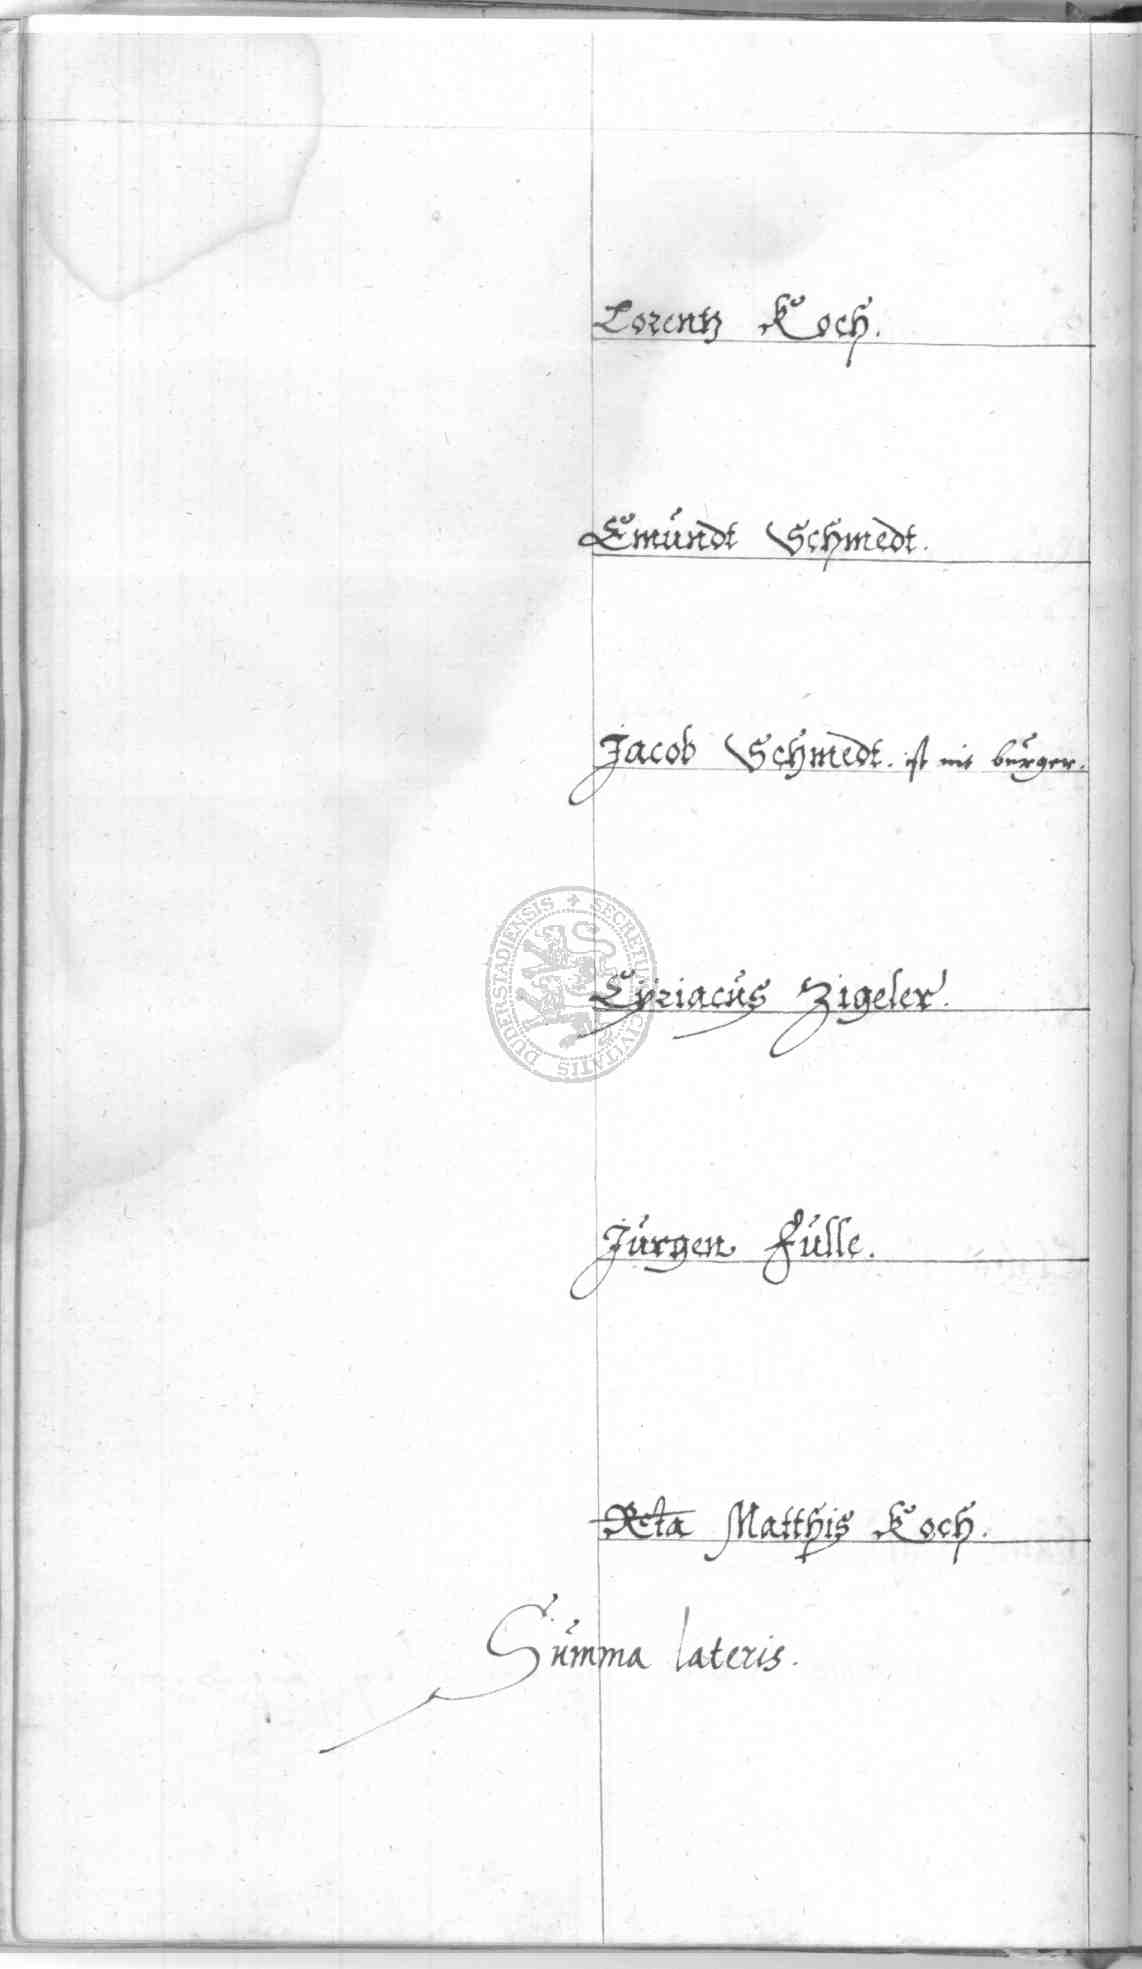 Lorentz Koch.
Emundt Schmedt.
Jacob Schmedt. ist nit burger.
SECRETUM CIVITATIS DUDERSTADIENSIS
Cyriacus Zigeler.
Jurgen Fulle.
Rcta Matthis Koch.
Summa lateris.